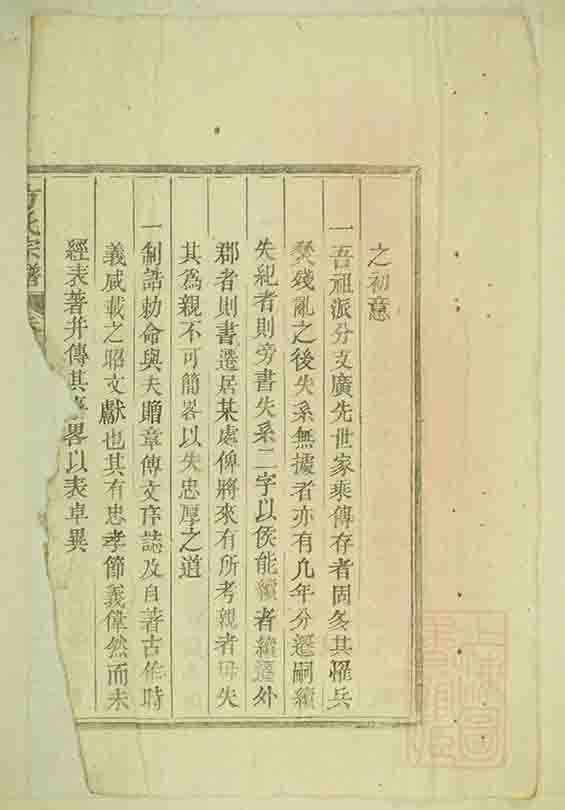 之初意
一吾祖派分支廣先世家乘傳存者固多其罹兵
燹殘亂之後失系無據者亦有凡年分遷嗣續
失紀者則旁書失系二字以俟能續者續遷外
郡者則書遷居某處俾將來有所考親者毋失
其爲親不可簡畧以失忠厚之道
一制誥勅命與夫贈章傳文序誌及自著古作時
義咸載之昭文獻也其有忠孝節義偉然而未
經表著并傳其畧以表卓異
方氏宗譜
上海圖書館藏